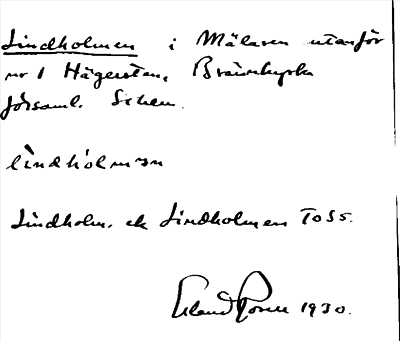 Lindholmen i Mälaren utanför
nr 1 Hägersten, Brännkyrka
församl. Sthlm.
lìndhòlmən
Lindholm. ek Lindholmen TOSS.
Erland 1930.